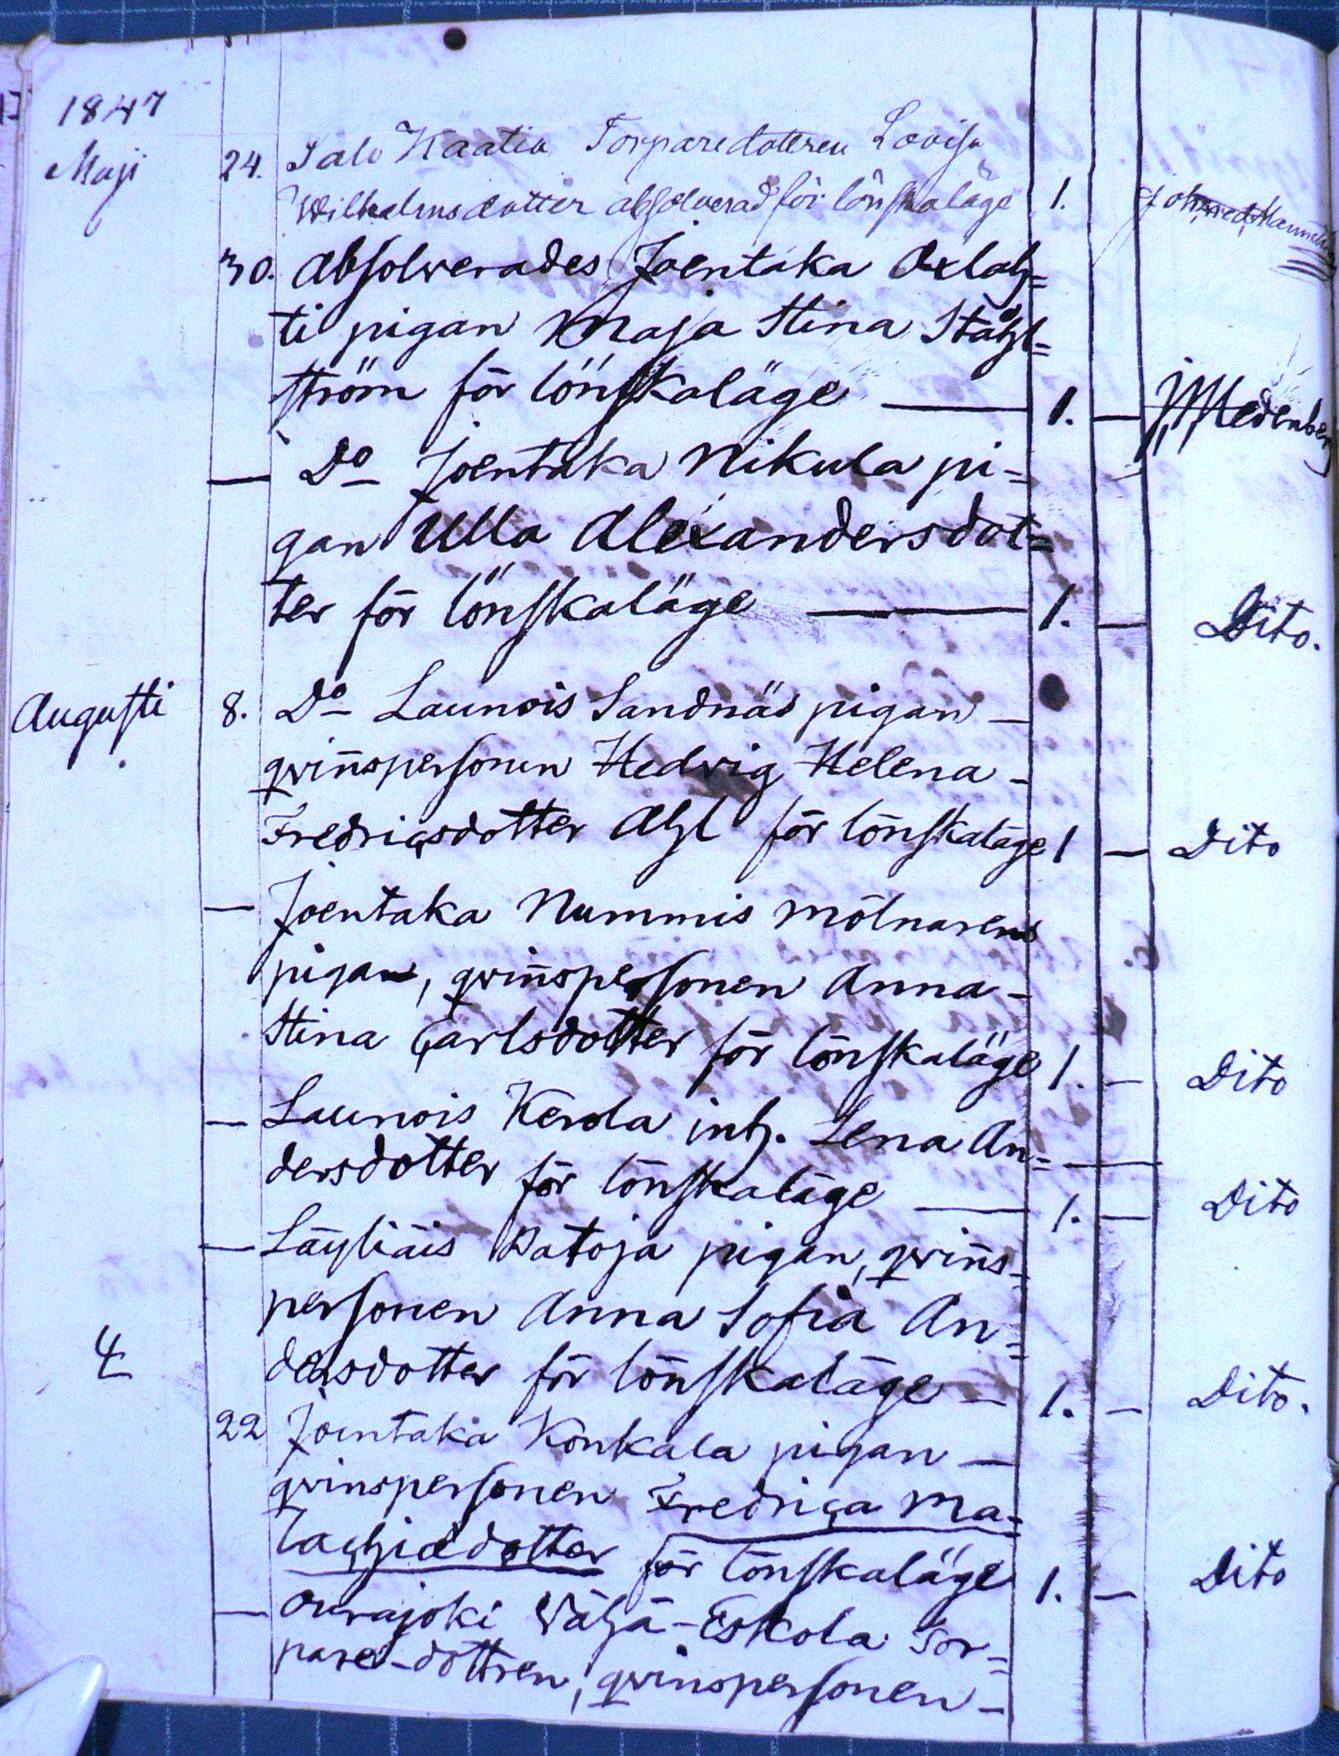 1847
Maji 24. Salo Kaatia Torparedottren Lovisa
Wilhelmsdotter absolverad för lönskaläge 1.
30. Absolverades Joentaka Axlah=
ti pigan Maja Stina Ståhl=
ström för lönskaläge — 1. —
— Do Joentaka Nikula pi=
gan Ulla Alexandersdot=
ter för lönskaläge — 1. — Dito.
Augusti 8. Do Launois Sandnäs pigan —
qvin̄spersonen Hedvig Helena -
Fredricsdotter Ahl för lönskaläge 1 — Dito
— Joentaka Nummis mölnarens
pigan, qvin̄spersonen Anna -
Stina Carlsdotter för lönskaläge 1. — Dito
— Launois Kerola inh. Lena An=
dersdotter för lönskaläge — 1. — Dito
— Läyliäis Ratoja pigan, qvin̄s-
personen Anna Sofia An=
dersdotter för lönskaläge — 1. — Dito.
4
22 Joentaka Konkala pigan —
qvinspersonen Fredrica Ma=
lachiædotter för lönskaläge 1. — Dito
— Ourajoki Wähä-Eskola Tor=
pare-dottren, qvinspersonen -